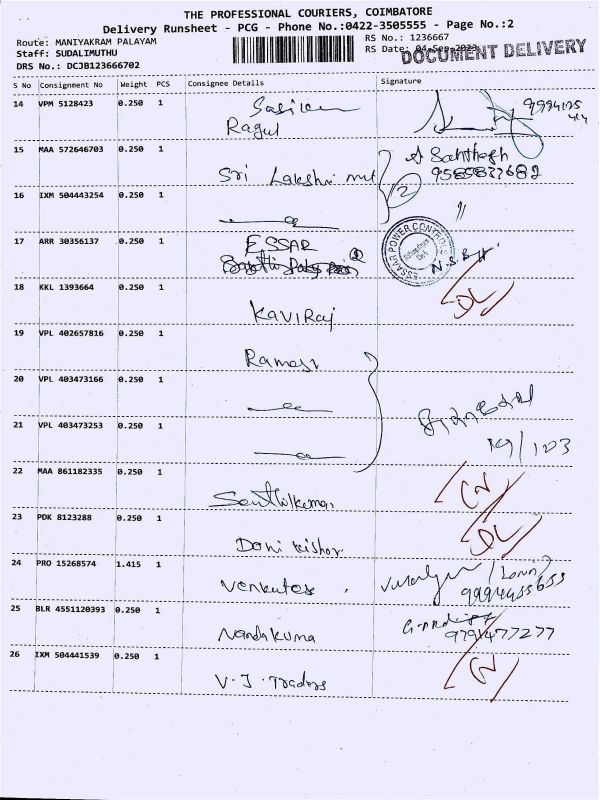 THE PROFESSIONAL COURIERS, COIMBATORE
Delivery Runsheet - PCG - Phone No.:0422-3505555 - Page No.:2
Route: MANIYAKRAM PALAYAM
RS No.: 1236667
Staff: SUDALIMUTHU
RS Date: 04-Sep-2023
DOCUMENT DELIVERY
DRS No.: DCJB123666702
S No Consignment No Weight PCS Consignee Details Signature
14 VPM 5128423 0.250 1
Ragul
15 MAA 572646703 0.250 1
Sri Lakshmi
9585877682
2
16 IXM 504443254 0.250 1
〃
17 ARR 30356137 0.250 1
ESSAR
ESSAAR POWER CONTROLS
18 KKL 1393664 0.250 1
KAVIRaj
DL
19 VPL 402657816 0.250 1
Ramesh
20 VPL 403473166 0.250 1
21 VPL 403473253 0.250 1
19/103
22 MAA 861182335 0.250 1
Senthilkumar
CN
23 PDK 8123288 0.250 1
Doni kishor
DL
24 PRO 15268574 1.415 1
Venkates
9994955655
25 BLR 4551120393 0.250 1
Nandakuma
9791477277
26 IXM 504441539 0.250 1
V.J. Traders
CN